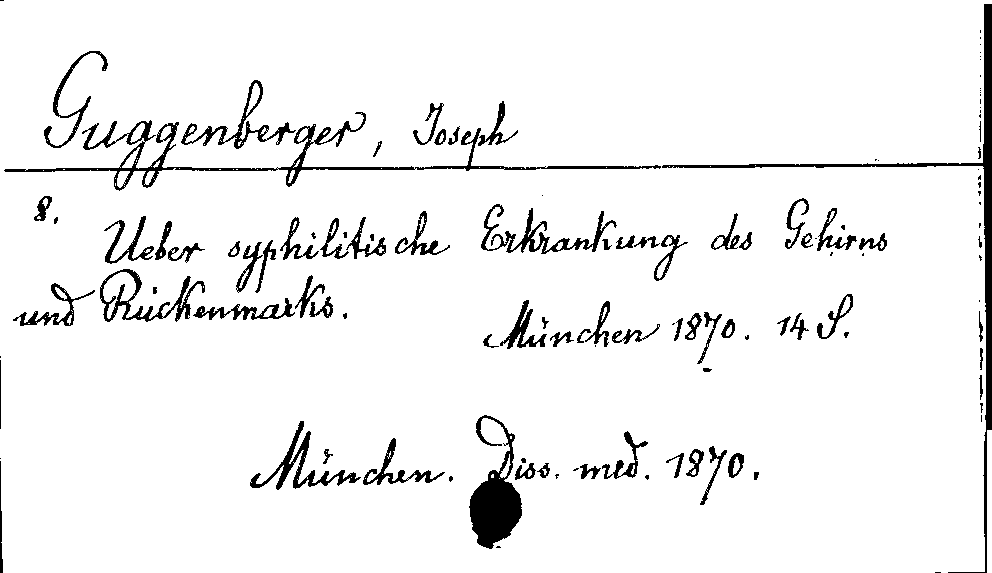 Guggenberger, Joseph
8.
Ueber syphilitische Erkrankung des Gehirns
und Rückenmarks.
München 1870. 14 S.
München. Diss. med. 1870.